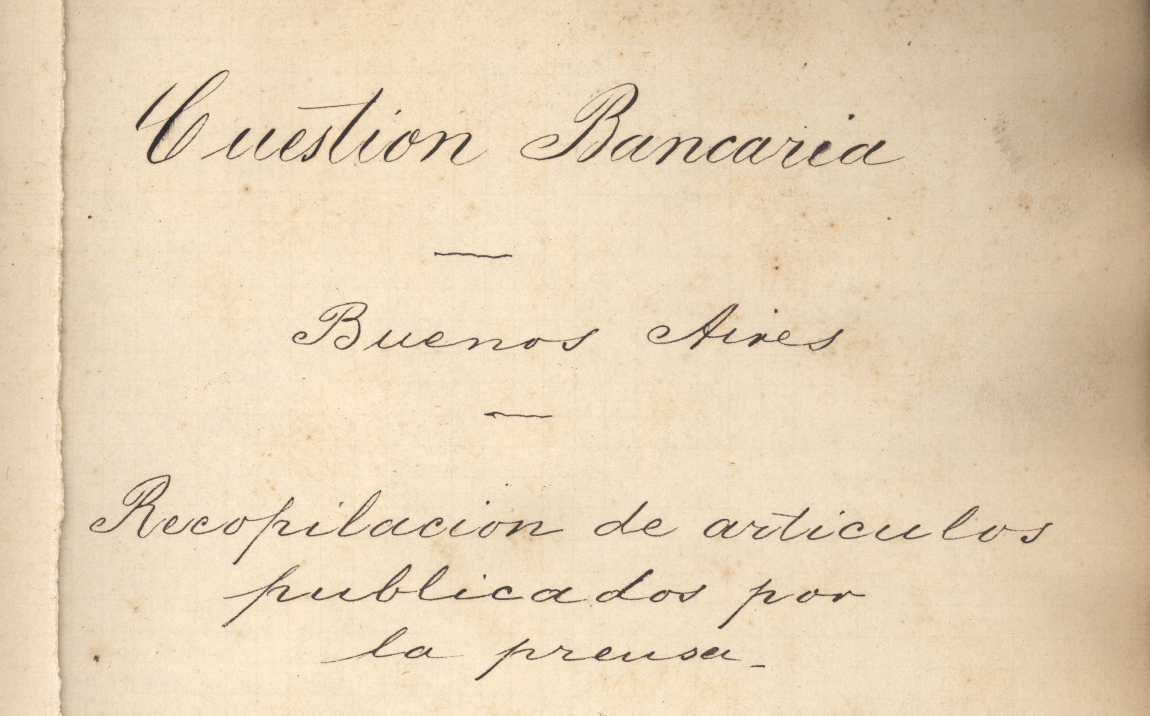 Cuestion Bancaria
—
Buenos Aires
—
Recopilacion de articulos
publicados por
la prensa_